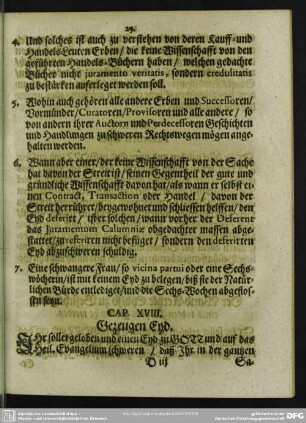 29.
4. Und solches ist auch zu verstehen von deren Kauff- und
Handels-Leuten Erben/ die keine Wissenschafft von den
geführten Handels-Büchern haben/ welchen gedachte
Bücher nicht juramento veritatis, sondern credulitatis
zu bestärcken aufferleget werden soll.
5. Wohin auch gehören alle andere Erben und Successoren/
Vormünder/ Curatoren/ Provisoren und alle andere/ so
von andern ihrer Auctorn und Prædecessoren Geschichten
und Handlungen zu schweren Rechtswegen mögen ange-
halten werden.
6. Wann aber einer/ der keine Wissenschafft von der Sache
hat davon der Streit ist/ seinen Gegentheil der gute und
gründliche Wissenschafft davon hat/ als wann er selbst ei-
nen Contract, Transaction oder Handel/ davon der
Streit herrühret/ beygewohnet und schliessen helffen/ den
Eyd deferirt/ ist er solchen/ wann vorher der Deferent
das Juramentum Calumniæ obgedachter massen abge-
stattet/ zu referiren nicht befüget/ sondern den deferirten
Eyd abzuschweren schuldig.
7. Eine schwangere Frau/ so vicina partui oder eine Sechs-
wöcherin/ ist mit einem Eyd zu belegen/ biß sie der Natür-
lichen Bürde entlediget/ und die Sechs-Wochen abgeflos-
sen seyn.
CAP. XVIII.
Gezeugen Eyd.
IHr sollet geloben und einen Eyd zu GOTT und auf das
Heil. Evangelium schweren/ daß Ihr in der gantzen
D iij Sa-